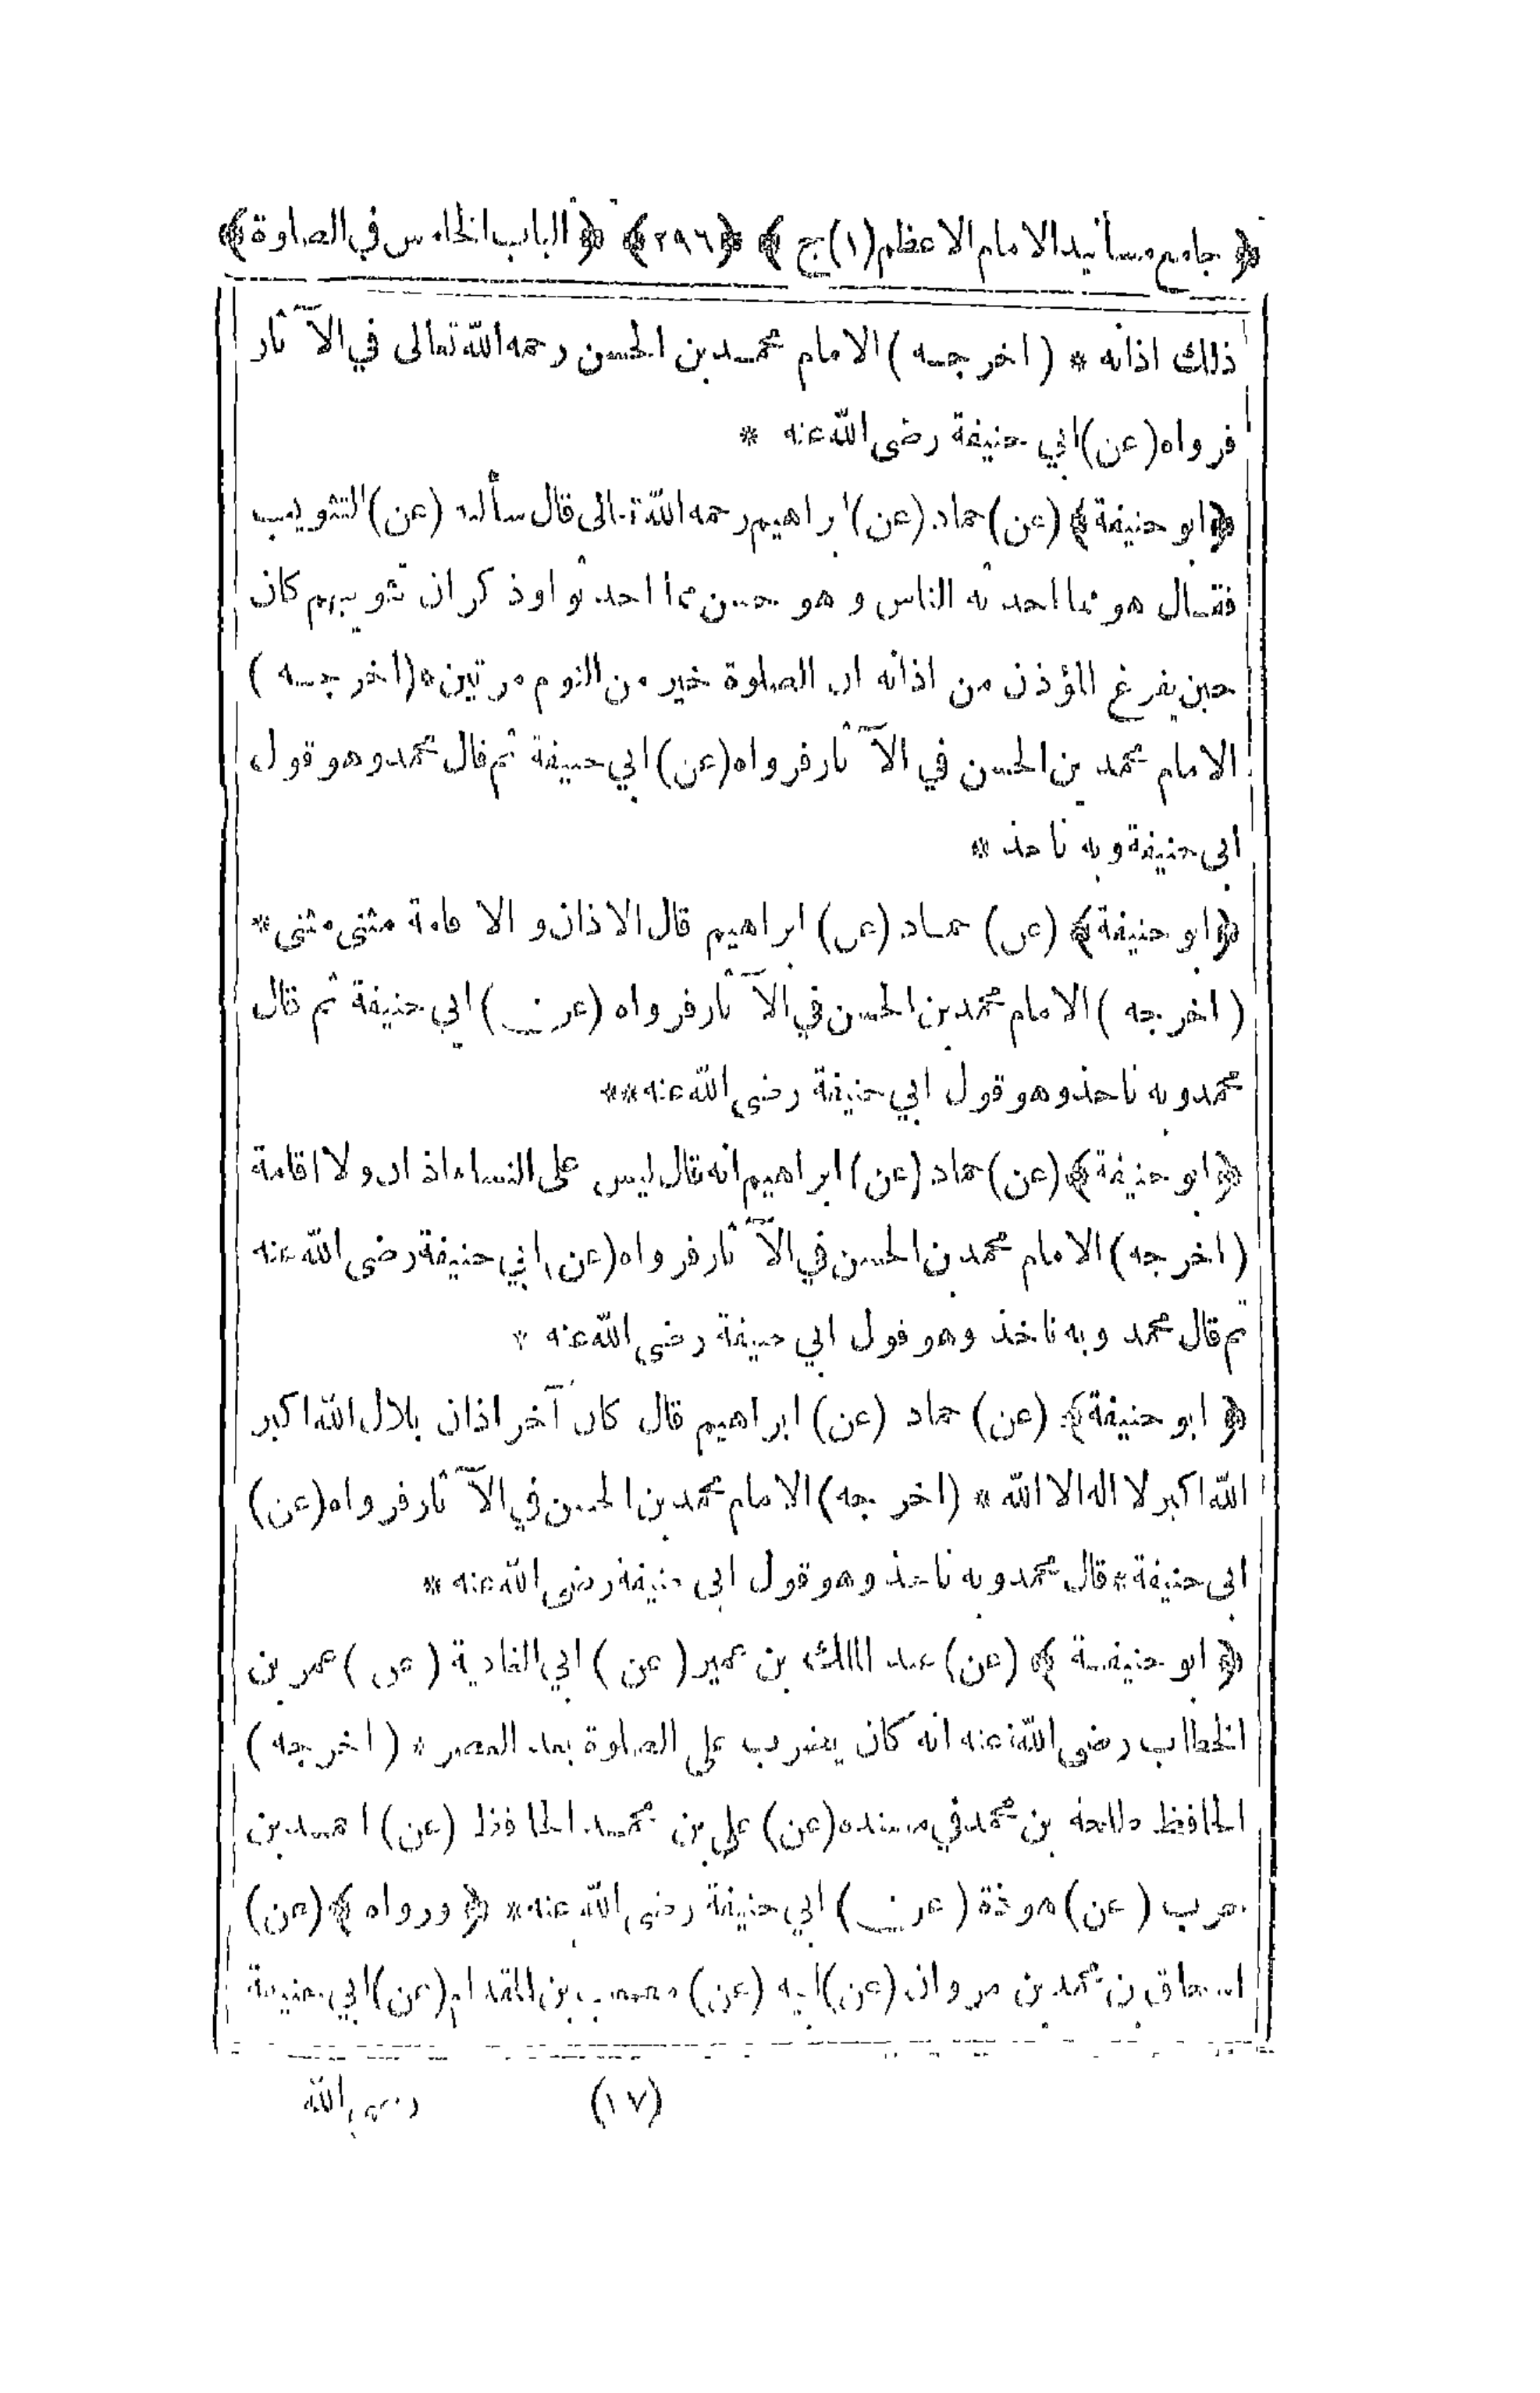 ﴿ جامع مسانيد الامام الاعظم (١) ج ﴾ ﴿ ٢٩٦ ﴾ ﴿ الباب الخامس في الصلوة ﴾
ذلك اذانه * ( اخرجه ) الامام محمد بن الحسن رحمه الله تعالى في الآثار
فرواه (عن) ابي حنيفة رضى الله عنه *
﴿ ابو حنيفة ﴾ (عن) حماد (عن) ابراهيم رحمه الله تعالى قال سألته (عن) التثويب
فقال هو مما احدثه الناس و هو حسن مما احدثوا وذكر ان تثويبهم كان
حين يفرغ المؤذن من اذانه ان الصلوة خير من النوم مرتين * (اخرجه )
الامام محمد بن الحسن في الآثار فرواه (عن) ابي حنيفة ثم قال محمد وهو قول
ابى حنيفة وبه ناخذ *
﴿ ابو حنيفة ﴾ (عن) حماد (عن) ابراهيم قال الاذان و الاقامة مثنى مثنى *
( اخرجه ) الامام محمد بن الحسن في الآثار فرواه (عن) ابي حنيفة ثم قال
محمد وبه ناخذ وهو قول ابي حنيفة رضى الله عنه **
﴿ ابو حنيفة ﴾ (عن) حماد (عن) ابراهيم انه قال ليس على النساء اذان ولا اقامة
( اخرجه ) الامام محمد بن الحسن في الآثار فرواه (عن) ابي حنيفة رضى الله عنه
ثم قال محمد وبه ناخذ وهو قول ابي حنيفة رضى الله عنه *
﴿ ابو حنيفة ﴾ (عن) حماد (عن) ابراهيم قال كان آخر اذان بلال الله اكبر
الله اكبر لا اله الا الله * (اخرجه) الامام محمد بن الحسن في الآثار فرواه (عن)
ابى حنيفة * قال محمد وبه ناخذ وهو قول ابى حنيفة رضى الله عنه *
﴿ ابو حنيفة ﴾ (عن) عبد الملك بن عمير (عن) ابي الغادية (عن) عمر بن
الخطاب رضى الله عنه انه كان يضرب على الصلوة بعد العصر * ( اخرجه )
الحافظ طلحة بن محمد في مسنده (عن) على بن محمد الحافظ (عن) احمد بن
حرب (عن) هوذة (عن) ابي حنيفة رضى الله عنه * ﴿ ورواه ﴾ (عن)
اسحاق بن محمد بن مروان (عن) ابيه (عن) مصعب بن المقدام (عن) ابي حنيفة
(١٧) رضى الله